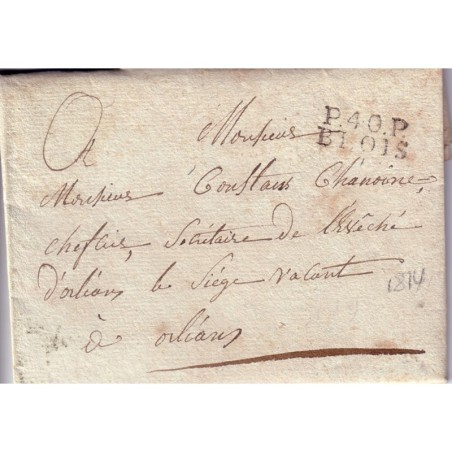 A Monsieur
P.40.P.
BLOIS
Monsieur Constans Chanoine,
chefcier, Secrétaire de l'Evêché
d'orléans le Siége vacant
1814
à orléans